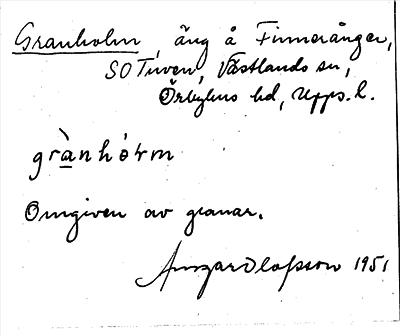 Granholm, äng å Finneränger,
SO Tuven, Västlands sn,
Örbyhus hd, Upps. l.
grànhórm
Omgiven av granar.
Ansgar Olofsson 1951